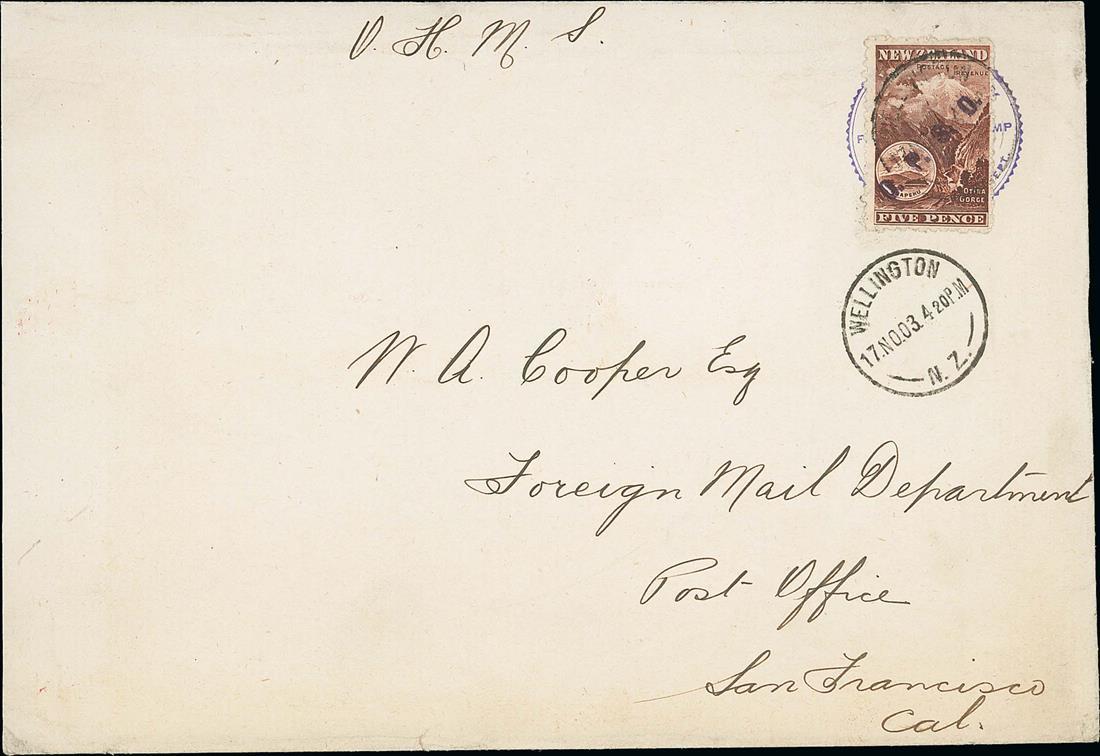 O. H. M. S.
NEW ZEALAND
POSTAGE &
REVENUE
O. P. S. O.
OTIRA
GORGE
RUAPEHU
FIVE PENCE
WELLINGTON
17.NO.03.4 20P.M
N. Z.
W. A. Cooper Esq
Foreign Mail Department
Post Office
San Francisco
Cal.